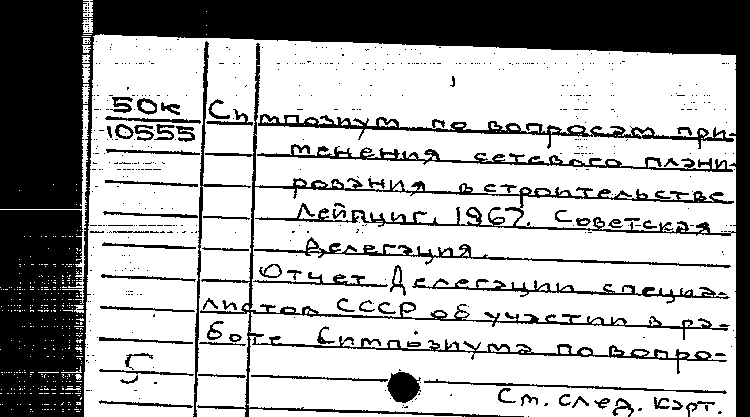 50к
10555
Симпозиум по вопросам при-
менения сетевого плани-
рования в строительстве
Лейпциг, 1967. Советская
делегация.
Отчет Делегации специа-
листов СССР об участии в ра-
боте Симпозиума по вопро-
5.
См. след. карт.